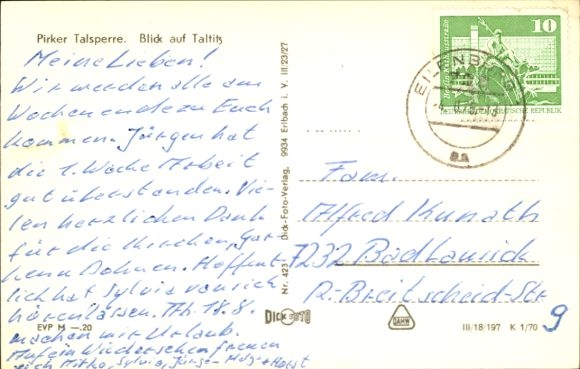 Pirker Talsperre. Blick auf Taltitz
Meine Lieben!
Wir werden alle am
Wochenende zu Euch
kommen. Jürgen hat
die 1. Woche Arbeit
gut überstanden. Vie-
len herzlichen Dank
für die Kirschen, Gur-
ken Bohnen. Hoffent-
lich hat Sylvia von sich
hören lassen. Ab 18.8.
machen wir Urlaub.
Auf ein Wiedersehen freuen
sich Mirko, Sylvia, Jürgen Horst
EVP M —.20
Nr. 423 Dick-Foto-Verlag, 9934 Erlbach i. V. III/23/27
DICK FOTO
10
DEUTSCHE DEMOKRATISCHE REPUBLIK
EILENBURG
aa
Fam.
Alfred Kunath
7232 Bad Lausick
R.-Breitscheid-Str.
9
DAHW
III/18/197 K 1/70